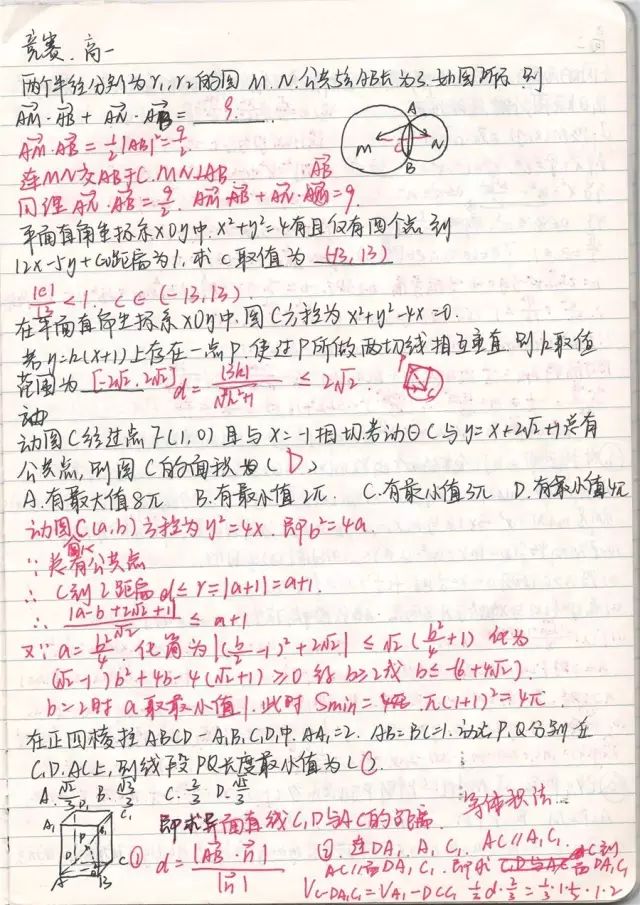 竞赛.高一
两个半径分别为r₁,r₂的圆M.N.公共弦AB长为3.如图所示.则
AM·AB + AN·AB = 9.
AM·AB = ½|AB|² = 9/2
连MN交AB于C.MN⊥AB
同理AN·AB = 9/2. AM·AB + AN·AB = 9.
平面直角坐标系xOy中.x²+y²=4有且仅有四个点到
12x-5y+c=0距离为1.求c取值为 (-13,13)
|c|/13 < 1. c∈(-13,13).
在平面直角坐标系xOy中.圆C方程为x²+y²-4x=0.
若y=k(x+1)上存在一点P.使过P所做两切线相互垂直.则k取值
范围为 [-2√2,2√2] d = |3k|/√(k²+1) ≤ 2√2.
动圆C经过点F(1,0)且与x=-1相切.若动⊙C与y=x+2√2+1总有
公共点,则圆C的面积为( D )
A.有最大值8π B.有最小值2π. C.有最小值3π D.有最小值4π
动圆C(a,b)方程为y²=4x.即b²=4a.
∵总有公共点
∴C到l距离d≤r=|a+1|=a+1.
∴|a-b+2√2+1|/√2 ≤ a+1
又∵a=b²/4 化简为|(b/2-1)²+2√2| ≤ √2(b²/4+1) 化为
(√2-1)b²+4b-4(√2+1)≥0 得b≥2或b≤-(6+4√2).
b=2时a取最小值1.此时Smin=π(1+1)²=4π.
在正四棱柱ABCD-A₁B₁C₁D₁中.AA₁=2. AB=BC=1.动点P.Q分别在
C₁D.AC上,则线段PQ长度最小值为( C ).
A.√2/3 B.√3/3 C.2/3 D.√5/3
即求异面直线C₁D与AC的距离. 等体积法...
① d = |AB·n|/|n|
②.连DA₁.A₁C₁. AC∥A₁C₁.
AC∥面DA₁C₁.即求AC到面DA₁C₁